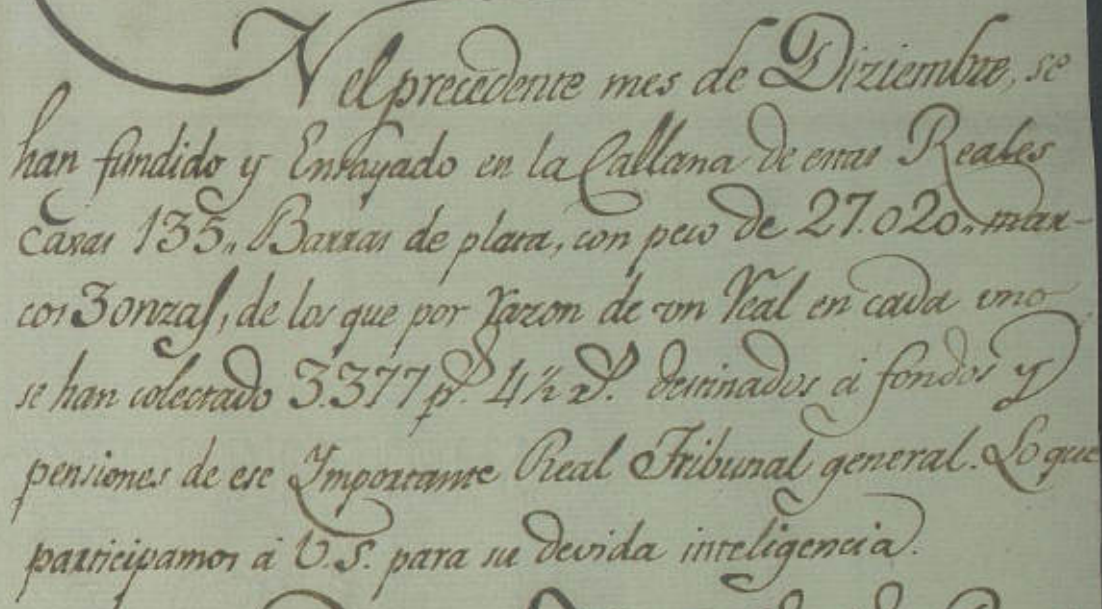 N el precedente mes de Diziembre, se
han fundido y Ensayado en la Callana de estas Reales
Caxas 135,, Barras de plata, con peso de 27.020,, mar-
cos 3 onzas, de los que por razon de vn Real en cada vno
se han colectado 3.377 ps. 4½ rs. destinados á fondos y
pensiones de ese Importante Real Tribunal general. Lo que
participamos á V.S. para su devida inteligencia.